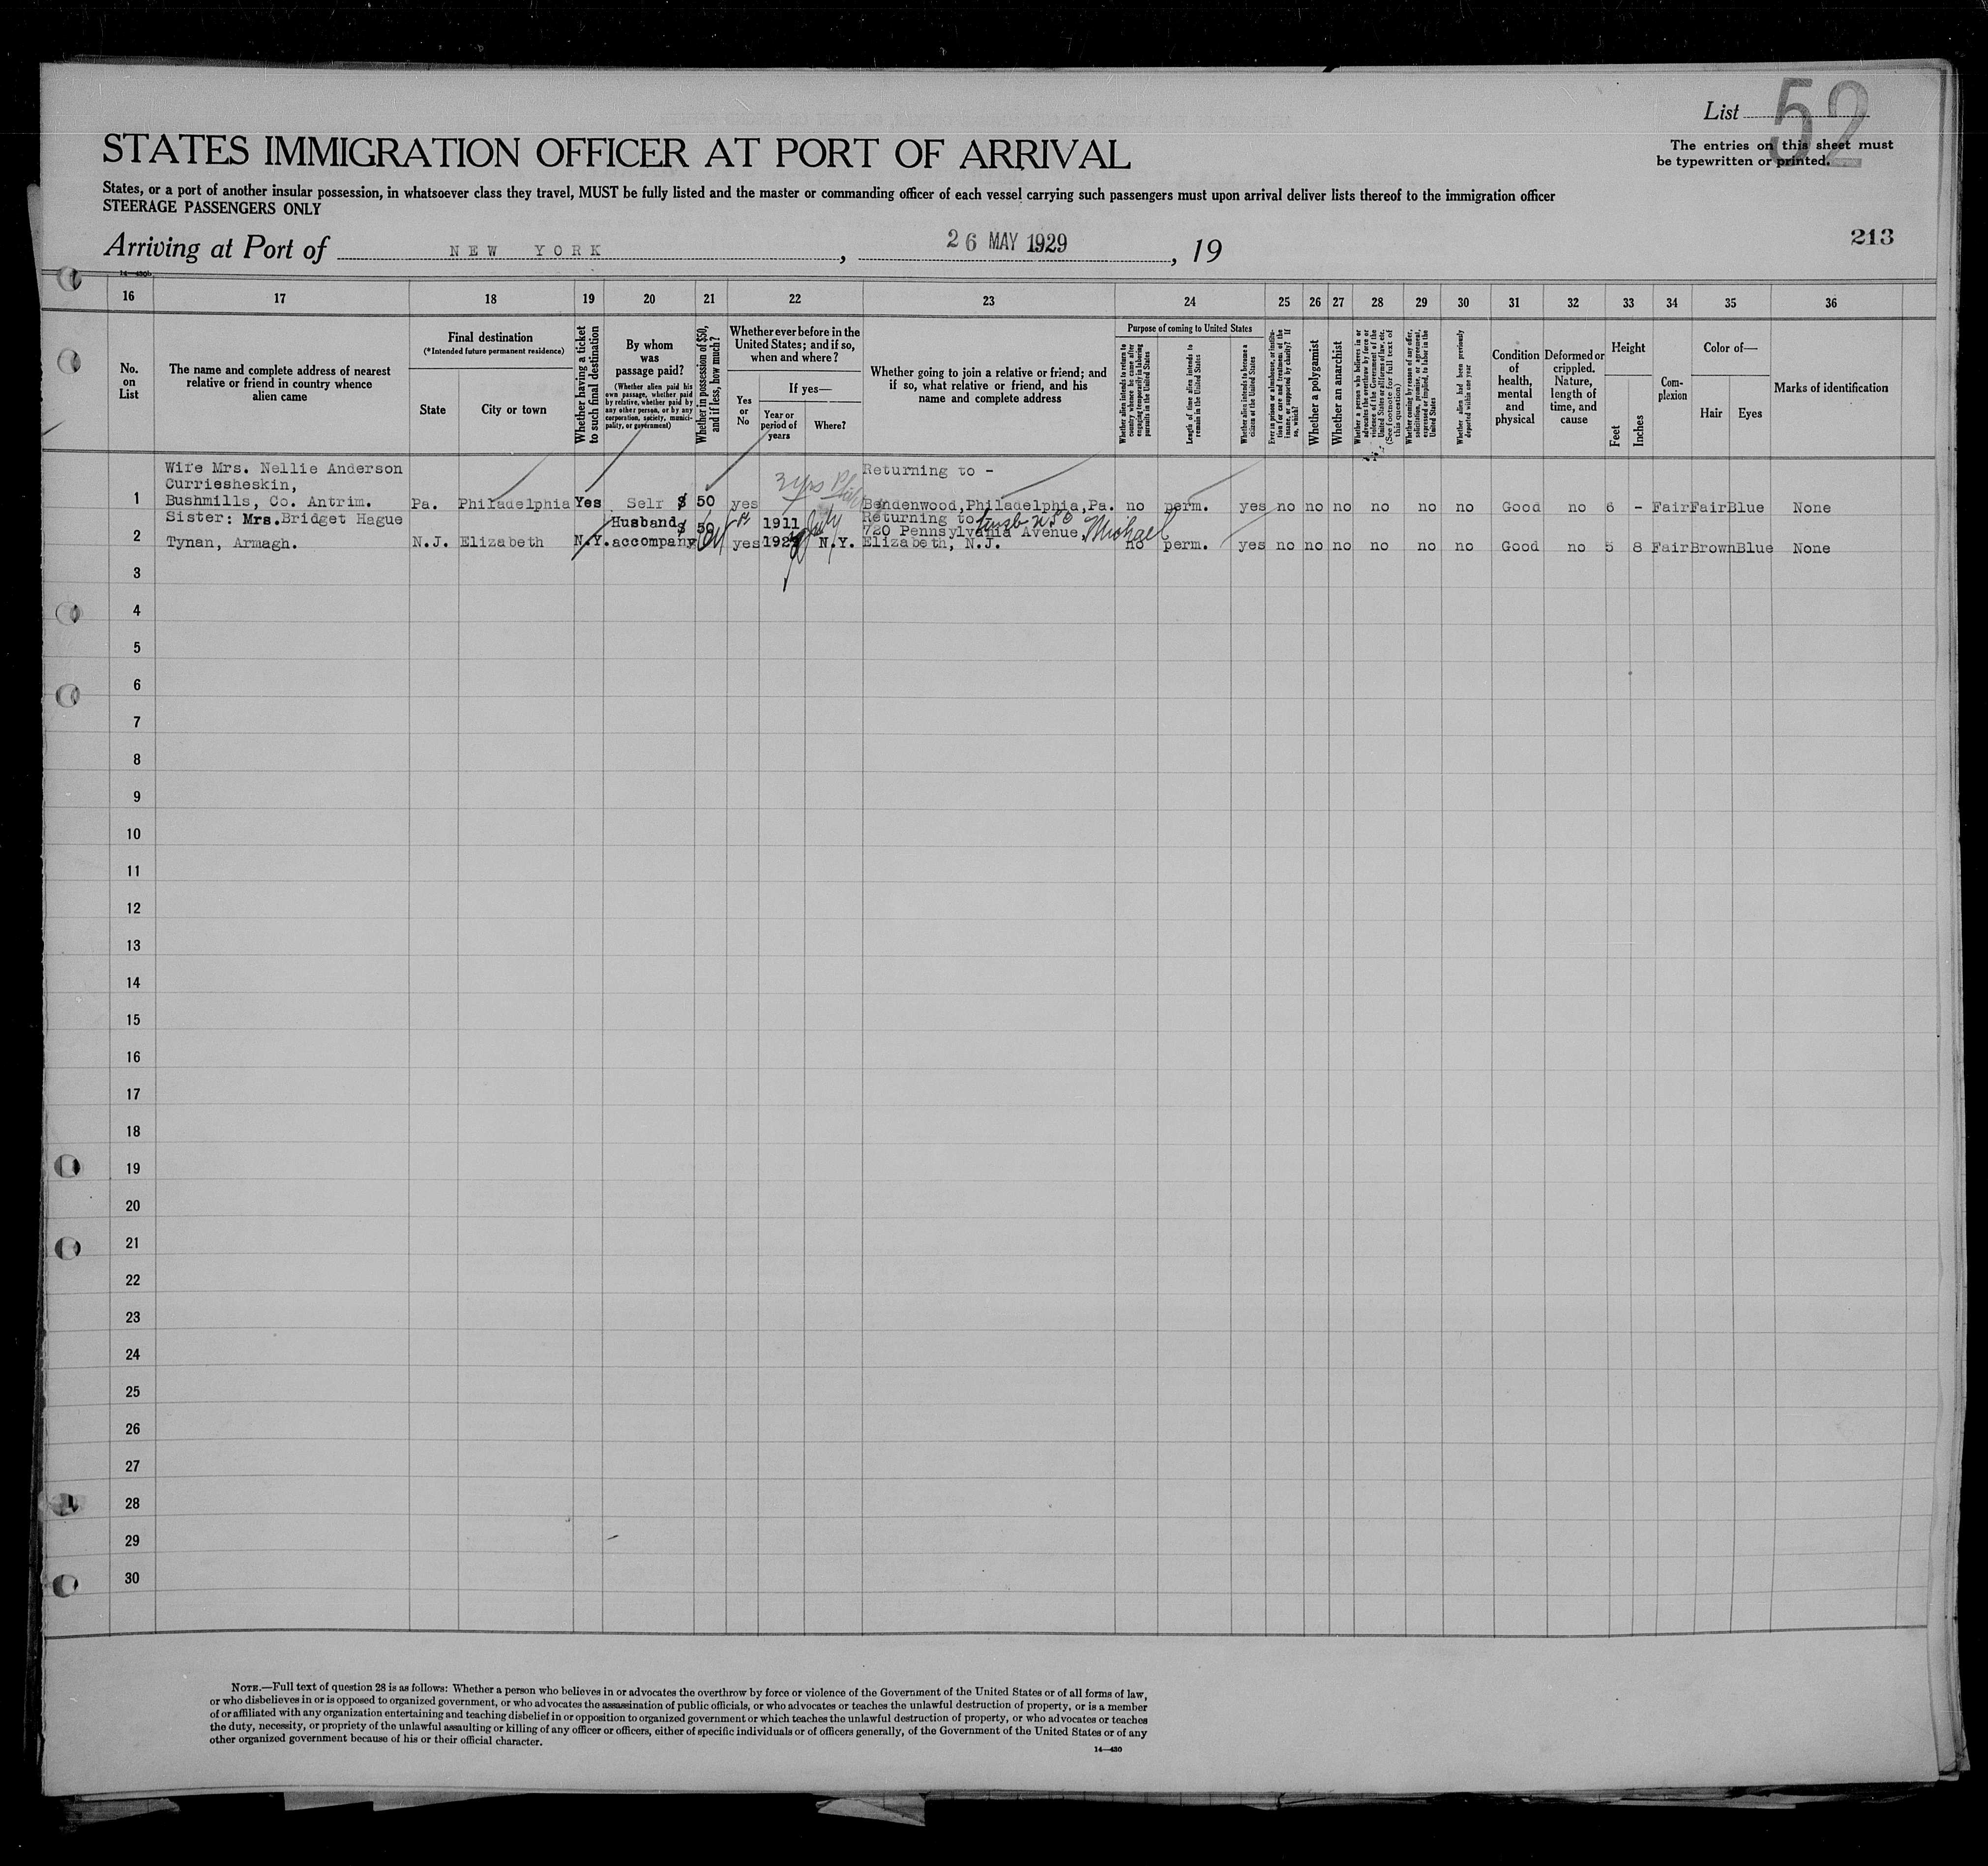 List 52
The entries on this sheet must
be typewritten or printed.
STATES IMMIGRATION OFFICER AT PORT OF ARRIVAL
States, or a port of another insular possession, in whatsoever class they travel, MUST be fully listed and the master or commanding officer of each vessel carrying such passengers must upon arrival deliver lists thereof to the immigration officer
STEERAGE PASSENGERS ONLY
Arriving at Port of NEW YORK, 26 MAY 1929, 19
213
14—430b
16 17 18 19 20 21 22 23 24 25 26 27 28 29 30 31 32 33 34 35 36
No.
on
List
The name and complete address of nearest
relative or friend in country whence
alien came
Final destination
(*Intended future permanent residence)
State
City or town
Whether having a ticket
to such final destination
By whom
was
passage paid?
(Whether alien paid his
own passage, whether paid
by relative, whether paid by
any other person, or by any
corporation, society, munici-
pality, or government)
Whether in possession of $50,
and if less, how much?
Whether ever before in the
United States; and if so,
when and where?
Yes
or
No
If yes—
Year or
period of
years
Where?
Whether going to join a relative or friend; and
if so, what relative or friend, and his
name and complete address
Purpose of coming to United States
Whether alien intends to return to
country whence he came after
engaging temporarily in laboring
pursuits in the United States
Length of time alien intends to
remain in the United States
Whether alien intends to become a
citizen of the United States
Ever in prison or almshouse, or institu-
tion for care and treatment of the
insane, or supported by charity? If
so, which?
Whether a polygamist
Whether an anarchist
Whether a person who believes in or
advocates the overthrow by force or
violence of the Government of the
United States or all forms of law, etc.
(See footnote for full text of
this question)
Whether coming by reason of any offer,
solicitation, promise, or agreement,
expressed or implied, to labor in the
United States
Whether alien had been previously
deported within one year
Condition
of
health,
mental
and
physical
Deformed or
crippled.
Nature,
length of
time, and
cause
Height
Feet
Inches
Com-
plexion
Color of—
Hair
Eyes
Marks of identification
Wife Mrs. Nellie Anderson
Curriesheskin,
Returning to -
3 yrs Phila
1 Bushmills, Co. Antrim. Pa. Philadelphia Yes Self $ 50 yes Bendenwood, Philadelphia, Pa. no perm. yes no no no no no no Good no 6 - Fair Fair Blue None
Sister: Mrs. Bridget Hague Husband $ 50 1911 July Returning to husb
720 Pennsylvania Avenue, Michael
2 Tynan, Armagh. N.J. Elizabeth N.Y. accompany yes N.Y. Elizabeth, N.J. no perm. yes no no no no no no Good no 5 8 Fair Brown Blue None
3
4
5
6
7
8
9
10
11
12
13
14
15
16
17
18
19
20
21
22
23
24
25
26
27
28
29
30
NOTE.—Full text of question 28 is as follows: Whether a person who believes in or advocates the overthrow by force or violence of the Government of the United States or of all forms of law,
or who disbelieves in or is opposed to organized government, or who advocates the assassination of public officials, or who advocates or teaches the unlawful destruction of property, or is a member
of or affiliated with any organization entertaining and teaching disbelief in or opposition to organized government or which teaches the unlawful destruction of property, or who advocates or teaches
the duty, necessity, or propriety of the unlawful assaulting or killing of any officer or officers, either of specific individuals or of officers generally, of the Government of the United States or of any
other organized government because of his or their official character.
14—430